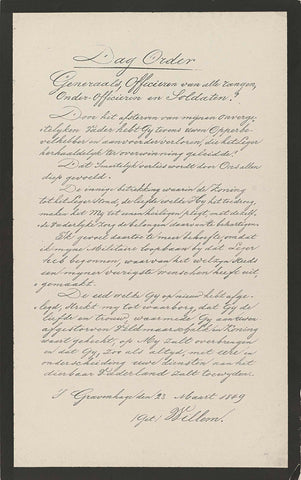 Dag Order
Generaals, Officieren van alle rangen,
Onder-Officieren en Soldaten!
Door het afsterven van mijnen onverge-
telijken Vader hebt Gy tevens uwen Opperbe-
velhebber en aanvoerder verloren, die het leger
herhaaldelijk ter overwinning geleidde!
Dat smartelijk verlies wordt door Ons allen
diep gevoeld.
De innige betrekking waarin de Koning
tot het leger stond, de liefde welke Hy het toedroeg,
maken het My tot eenen heiligen pligt, met de zelf-
de Vaderlijke Zorg de belangen daarvan te behartigen.
Ik gevoel daartoe te meer behoefte, omdat
ik myne Militaire loopbaan by dat Leger
heb begonnen, waarvan het welzyn steeds
een myner vurigste wenschen heeft uit-
gemaakt.
De eed welke Gy op nieuw hebt afge-
legd, strekt my tot waarborg, dat Gy de
liefde en trouw, waarmede Gy aan uwen
afgestorven Veldmaarschalk en Koning
waart gehecht, op My zult overbragen
en dat Gy, zoo als altyd, met eere en
onderscheiding uwe diensten aan het
dierbaar Vaderland zult toewyden.
S Gravenhage den 23 Maart 1849
(Get) Willem.